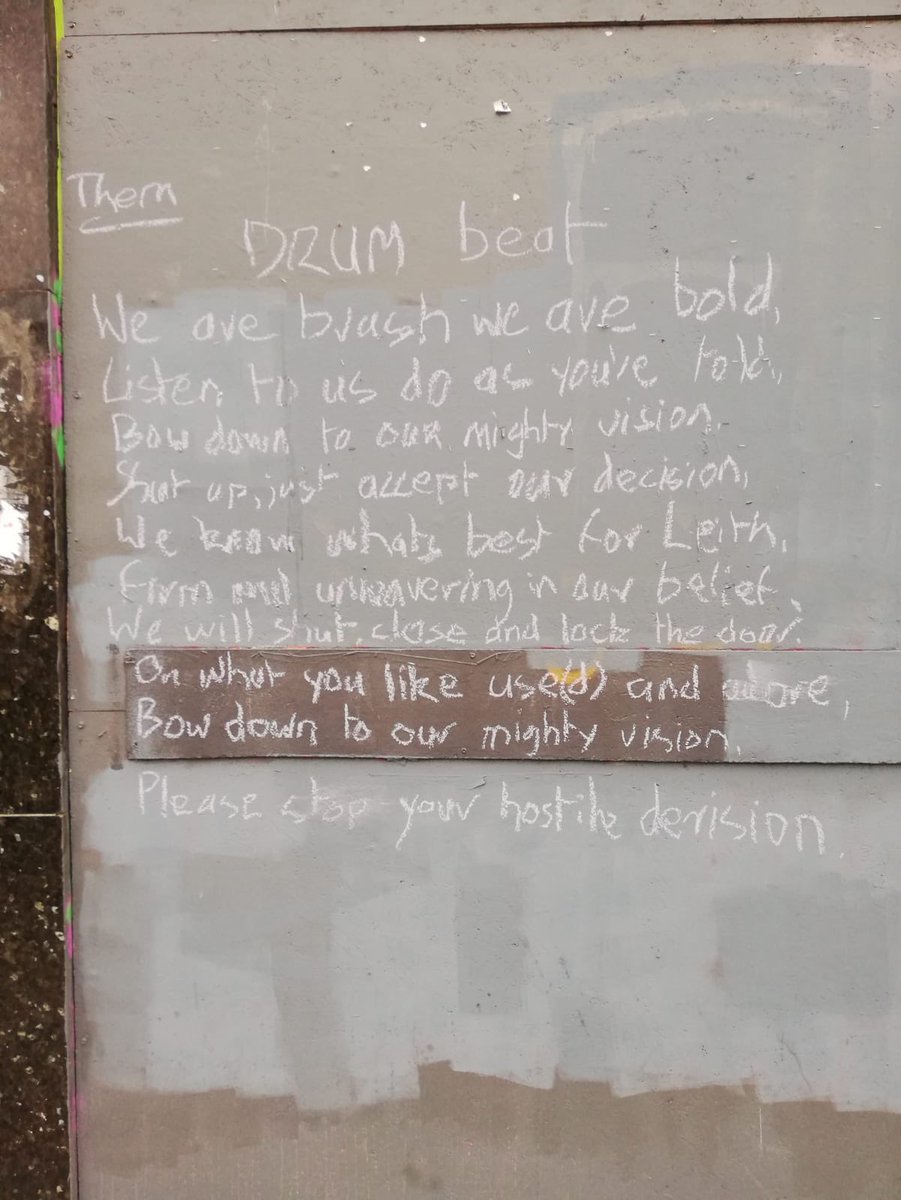 Them
DRUM beat
We are brash we are bold,
Listen to us do as you've told,
Bow down to our mighty vision.
Shut up, just accept our decision,
We know whats best for Leith,
Firm and unwavering in our belief,
We will shut, close and lock the door.
On what you like use(d) and adore,
Bow down to our mighty vision,
Please stop your hostile derision.